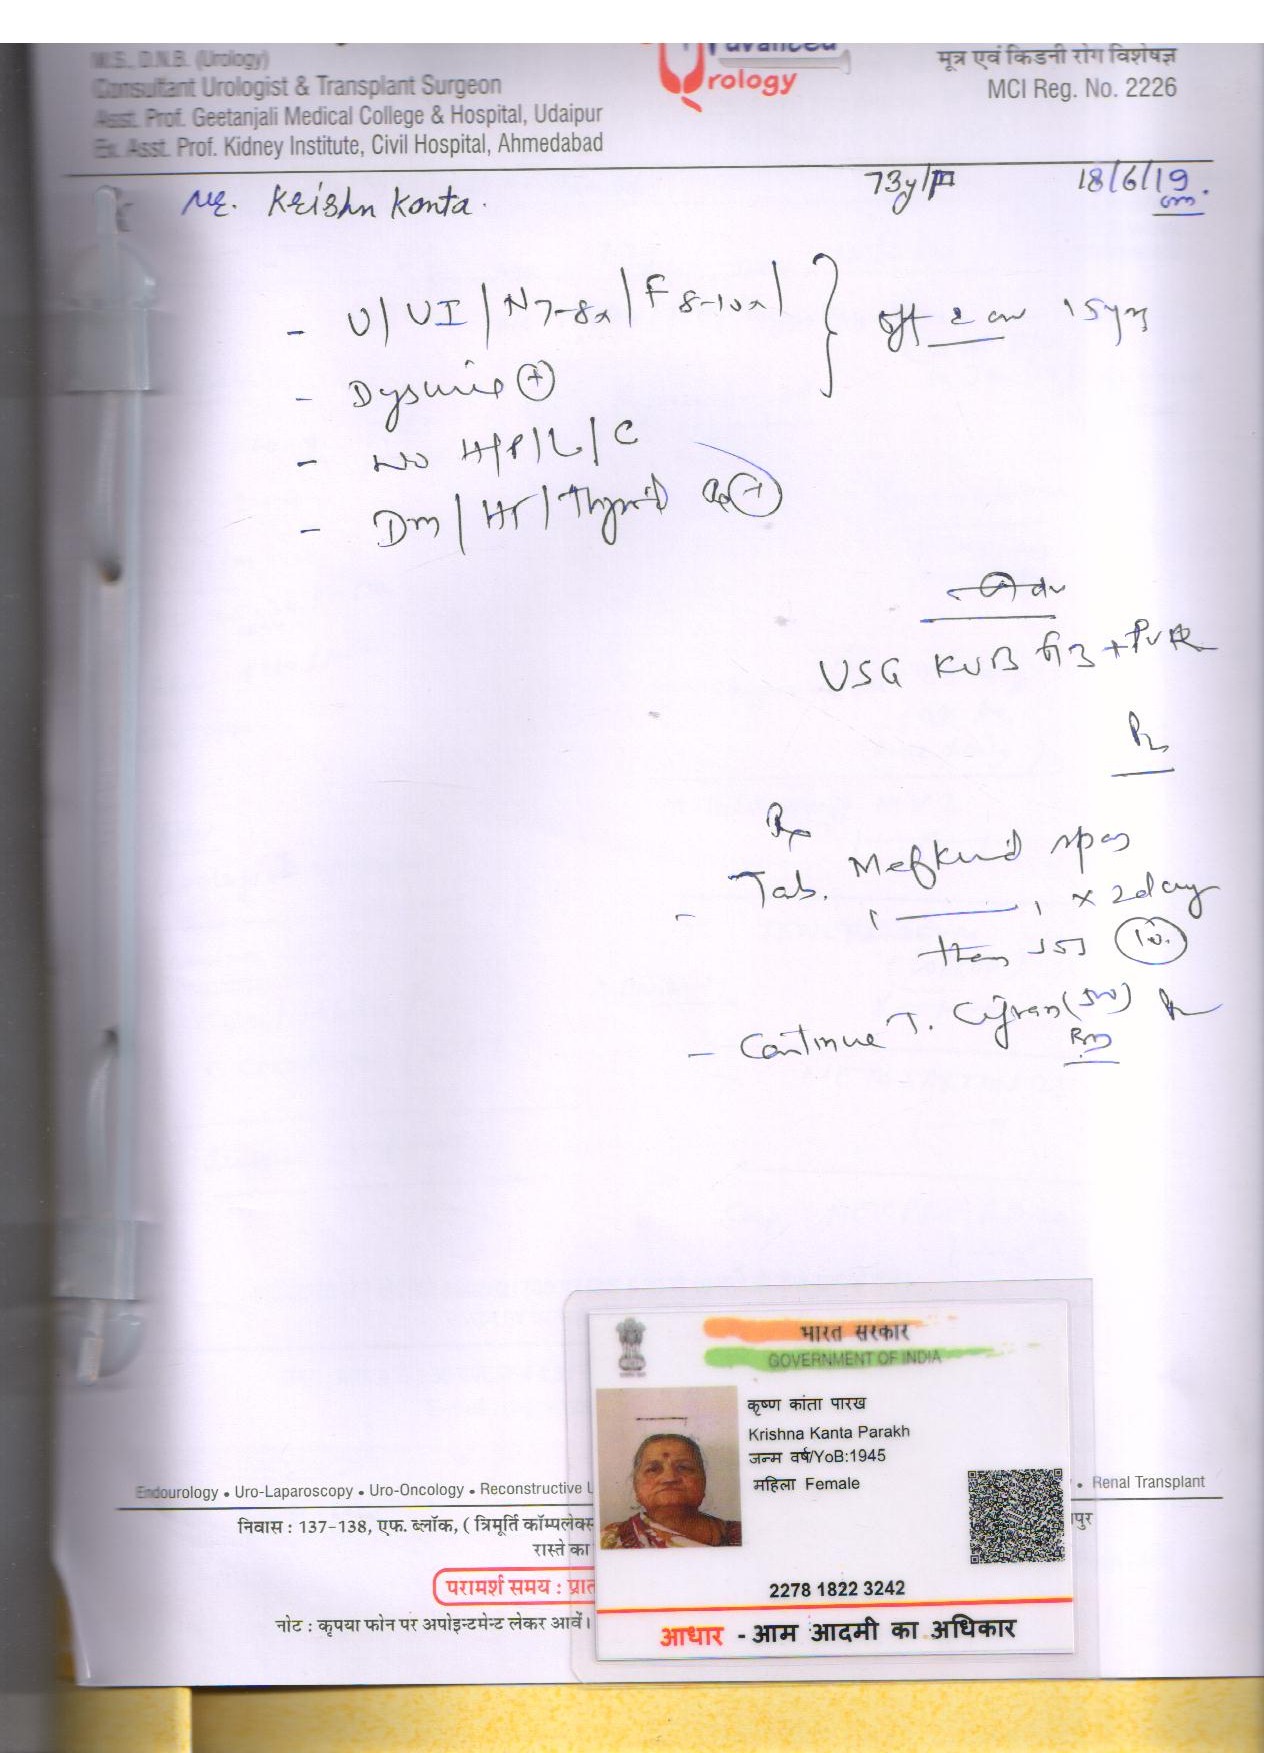 M.S., D.N.B. (Urology)
Consultant Urologist & Transplant Surgeon
Asst. Prof. Geetanjali Medical College & Hospital, Udaipur
Ex. Asst. Prof. Kidney Institute, Civil Hospital, Ahmedabad
Advanced
Urology
मूत्र एवं किडनी रोग विशेषज्ञ
MCI Reg. No. 2226
Krishn Kanta.
73y/F
18/6/19.
- U/UI/N7-8x/F8-10x/
- Dysuria +
- No H/P/L/C
- Dm/HT/Thyroid +
Adv
USG KUB + PVR
Rx
- Tab. Mefkind spas
1 1 x 2 day
then SOS
- Continue T. Cifran (500)
भारत सरकार
GOVERNMENT OF INDIA
कृष्ण कांता पारख
Krishna Kanta Parakh
जन्म वर्ष/YoB:1945
महिला Female
2278 1822 3242
आधार - आम आदमी का अधिकार
Endourology • Uro-Laparoscopy • Uro-Oncology • Reconstructive • Renal Transplant
निवास : 137-138, एफ. ब्लॉक, ( त्रिमूर्ति कॉम्पलेक्स
रास्ते का
परामर्श समय :
नोट : कृपया फोन पर अपोइन्टमेन्ट लेकर आवें।